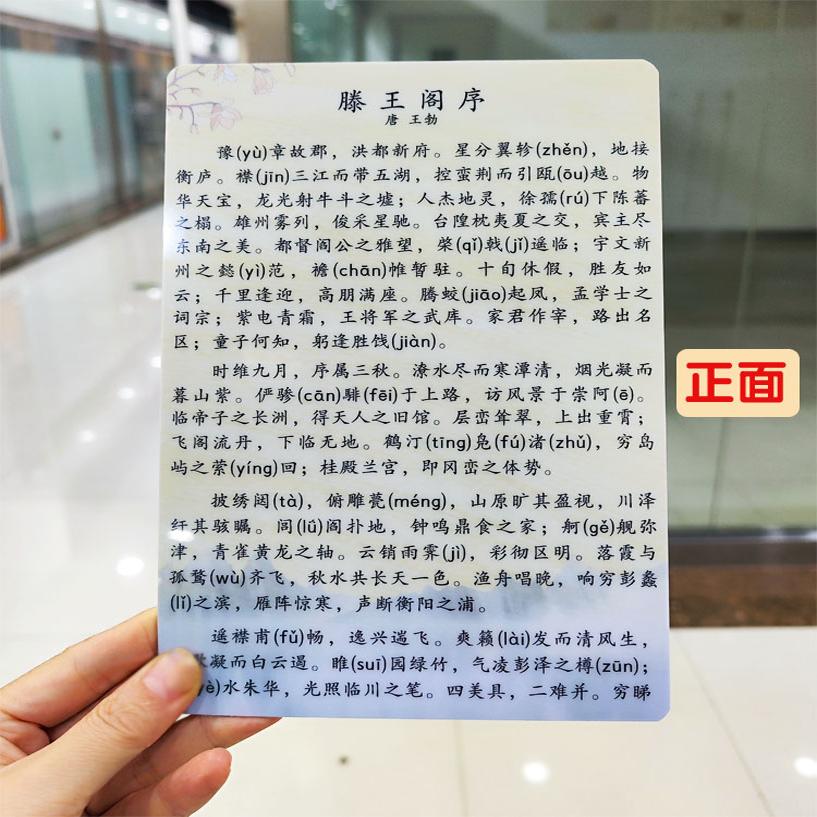 滕王阁序
唐 王勃
豫(yù)章故郡，洪都新府。星分翼轸(zhěn)，地接
衡庐。襟(jīn)三江而带五湖，控蛮荆而引瓯(ōu)越。物
华天宝，龙光射牛斗之墟；人杰地灵，徐孺(rú)下陈蕃
之榻。雄州雾列，俊采星驰。台隍枕夷夏之交，宾主尽
东南之美。都督阎公之雅望，棨(qǐ)戟(jǐ)遥临；宇文新
州之懿(yì)范，襜(chān)帷暂驻。十旬休假，胜友如
云；千里逢迎，高朋满座。腾蛟(jiāo)起凤，孟学士之
词宗；紫电青霜，王将军之武库。家君作宰，路出名
区；童子何知，躬逢胜饯(jiàn)。
时维九月，序属三秋。潦水尽而寒潭清，烟光凝而
暮山紫。俨骖(cān)騑(fēi)于上路，访风景于崇阿(ē)。
临帝子之长洲，得天人之旧馆。层峦耸翠，上出重霄；
飞阁流丹，下临无地。鹤汀(tīng)凫(fú)渚(zhǔ)，穷岛
屿之萦(yíng)回；桂殿兰宫，即冈峦之体势。
披绣闼(tà)，俯雕甍(méng)，山原旷其盈视，川泽
纡其骇瞩。闾(lǘ)阎扑地，钟鸣鼎食之家；舸(gě)舰弥
津，青雀黄龙之轴。云销雨霁(jì)，彩彻区明。落霞与
孤鹜(wù)齐飞，秋水共长天一色。渔舟唱晚，响穷彭蠡
(lǐ)之滨，雁阵惊寒，声断衡阳之浦。
遥襟甫(fǔ)畅，逸兴遄飞。爽籁(lài)发而清风生，
凝而白云遏。睢(suī)园绿竹，气凌彭泽之樽(zūn)；
水朱华，光照临川之笔。四美具，二难并。穷睇
正面